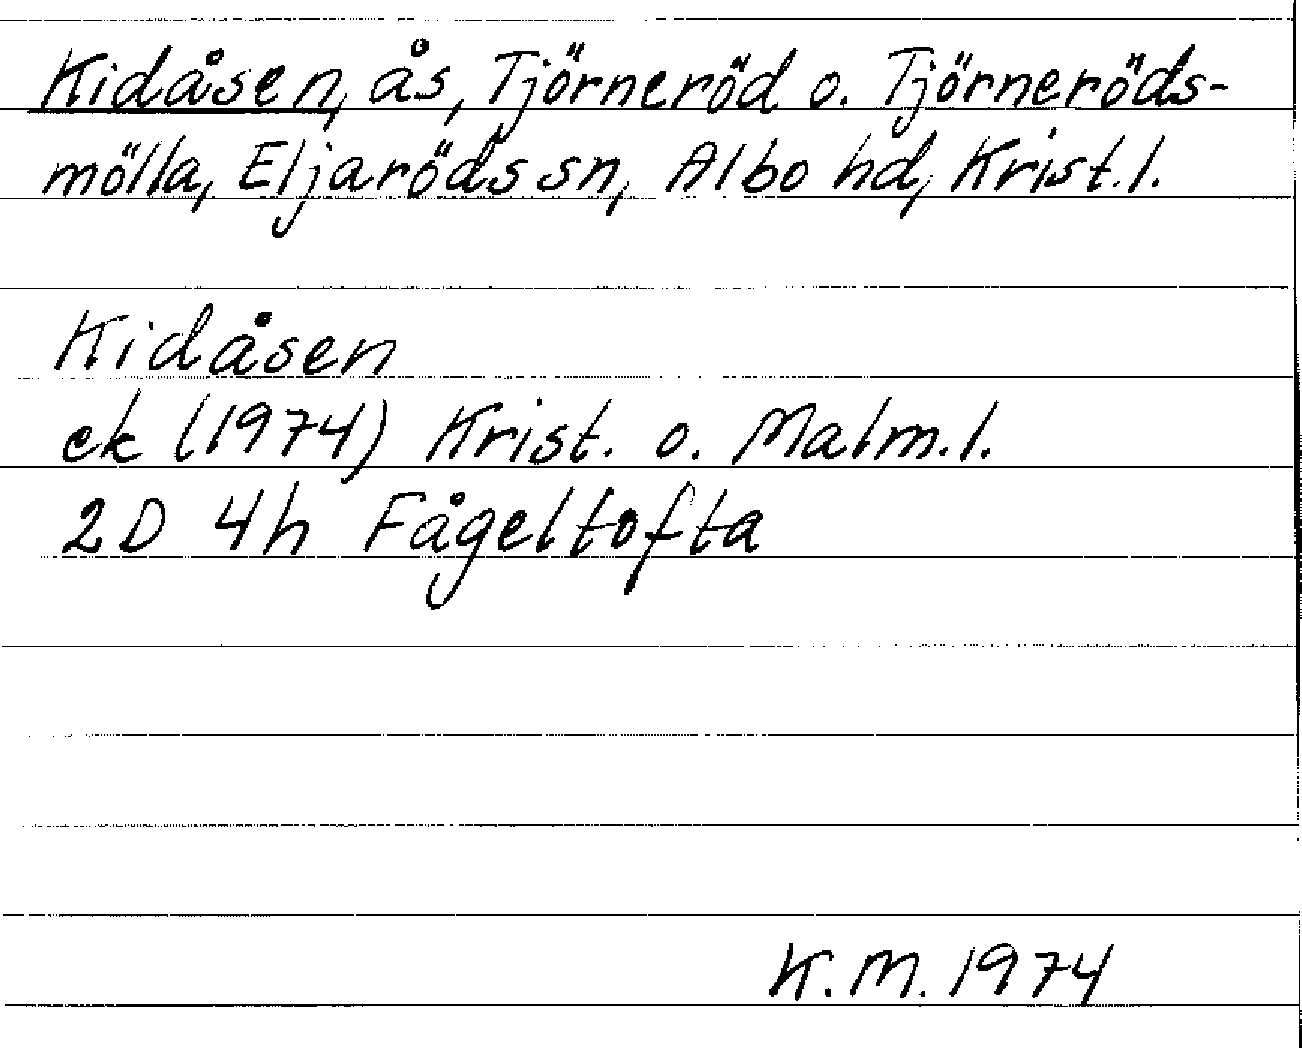 Kidåsen, ås, Tjörneröd o. Tjörneröds-
mölla, Eljaröds sn, Albo hd, Krist. l.
Kidåsen
ek (1974) Krist. o. Malm. l.
2D 4h Fågeltofta
K.M. 1974